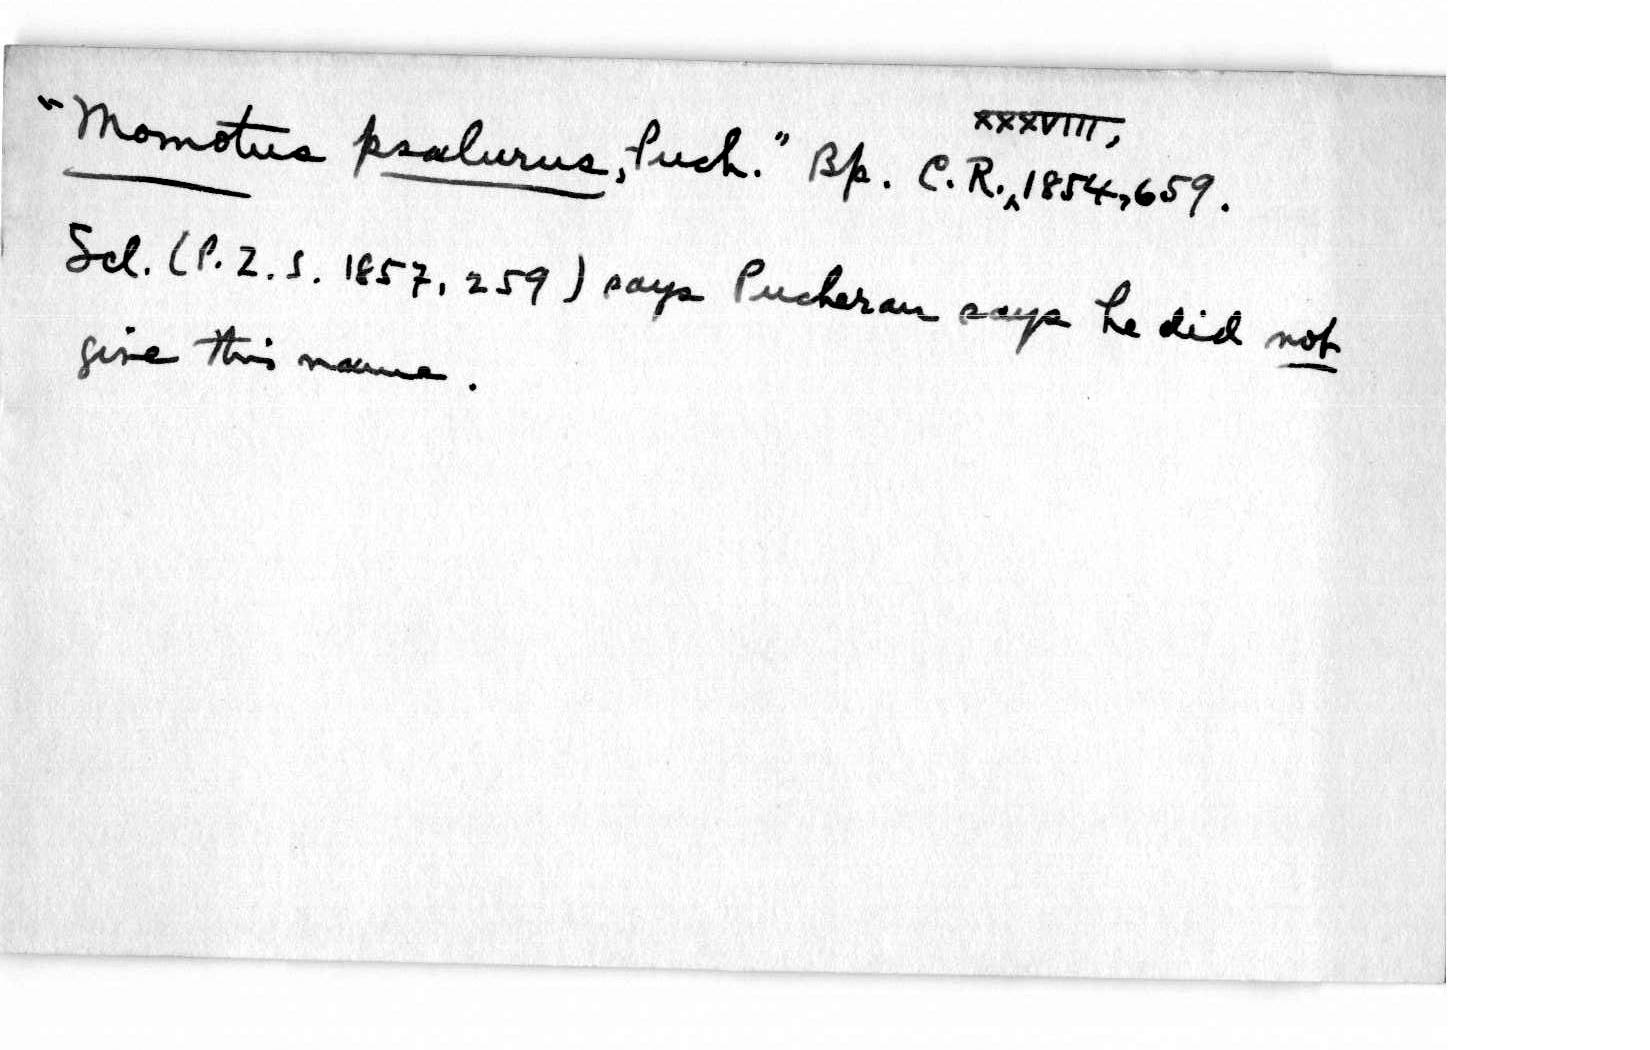 "Momotus psalurus, Puch." Bp. C.R., XXXVIII, 1854, 659.
Scl. (P.Z.S. 1857, 259) says Pucheran says he did not
give this name.